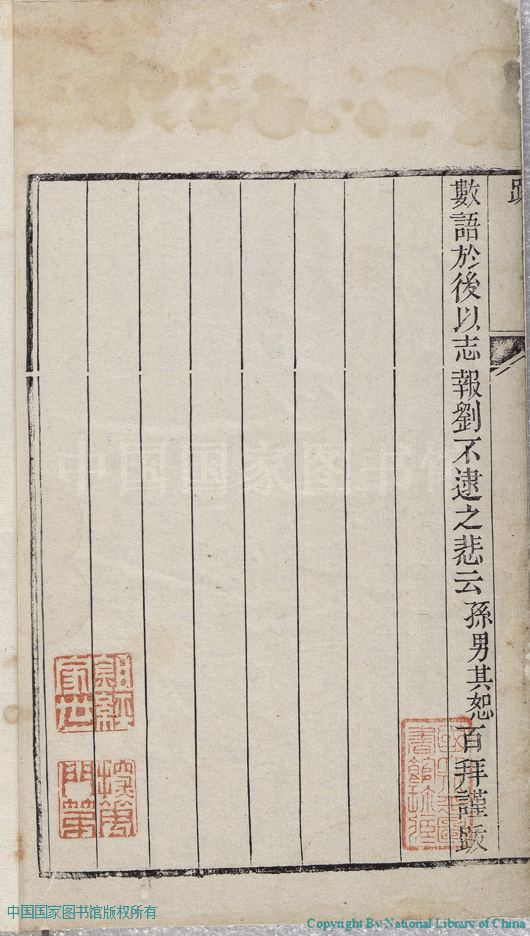 數語於後以志報劉不逮之悲云孫男其恕百拜謹跋
中国国家图书馆
中国国家图书馆版权所有
Copyright By National Library of China